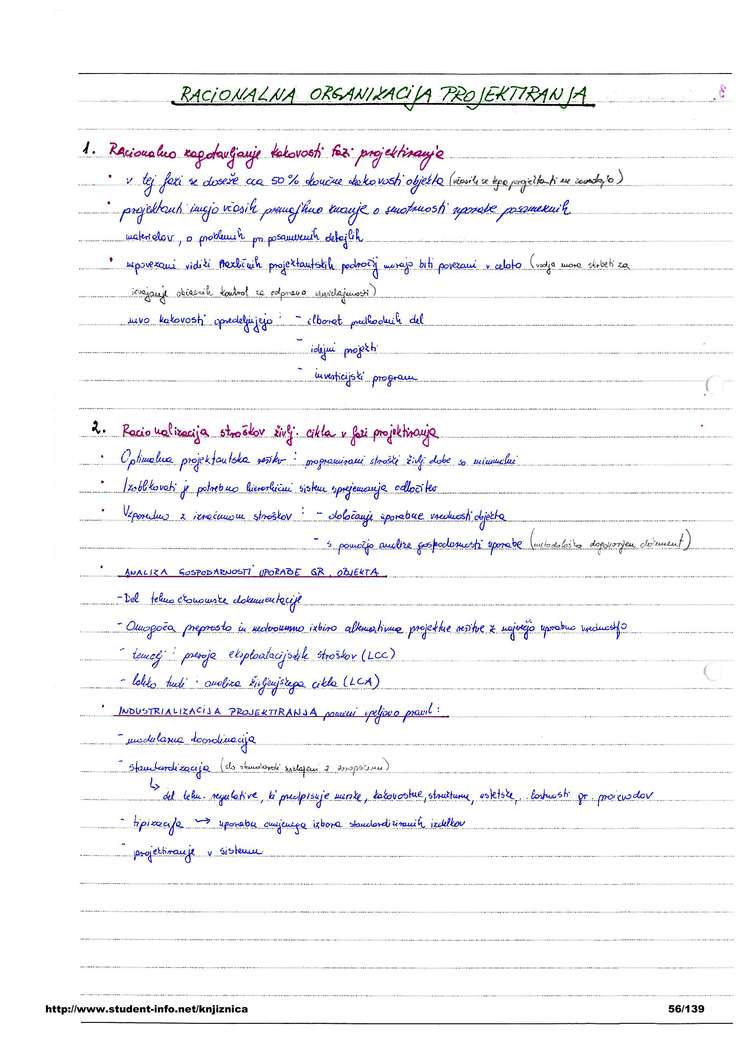 RACIONALNA ORGANIZACIJA PROJEKTIRANJA
8
1. Racionalno zagotavljanje kakovosti fazi projektiranja
• v tej fazi se doseže cca 50% končne kakovosti objekta (včasih se tega projektanti ne zavedajo)
• projektanti imajo včasih premajhno znanje o smotrnosti uporabe posameznih
materialov, o problemih pri posameznih detajlih
• nepovezani vidiki različnih projektantskih področij morajo biti povezani v celoto (vodja mora skrbeti za
izvajanje občasnih kontrol za odpravo neusklajenosti)
nivo kakovosti opredeljujejo: - elborat predhodnih del
- idejni projekti
- investicijski program
2. Racionalizacija stroškov življ. cikla v fazi projektiranja
• Optimalna projektantska rešitev: programirani stroški življ dobe so minimalni
• Izoblikovati je potrebno hierarhični sistem sprejemanja odločitev
• Vzporedno z izračunom stroškov: - določanje uporabne vrednosti objekta
- s pomočjo analize gospodarnosti uporabe (metodološko dogovorjen dokument)
• ANALIZA GOSPODARNOSTI UPORABE GR. OBJEKTA
- Del tehnoekonomske dokumentacije
- Omogoča preprosto in nedvoumno izbiro alternativne projektne rešitve z največjo uporabno vrednostjo
- temelj: presoja eksploatacijskih stroškov (LCC)
- lahko tudi: analiza življenjskega cikla (LCA)
• INDUSTRIALIZACIJA PROJEKTIRANJA pomeni vpeljavo pravil:
- modularna koordinacija
- standardizacija (slo standardi usklajeni z evropskimi)
↳ del tehn. regulative, ki predpisuje merske, kakovostne, strukturne, estetske, lastnosti gr. proizvodov
- tipizacija → uporaba omejenega izbora standardiziranih izdelkov
- projektiranje v sistemu
http://www.student-info.net/knjiznica
56/139